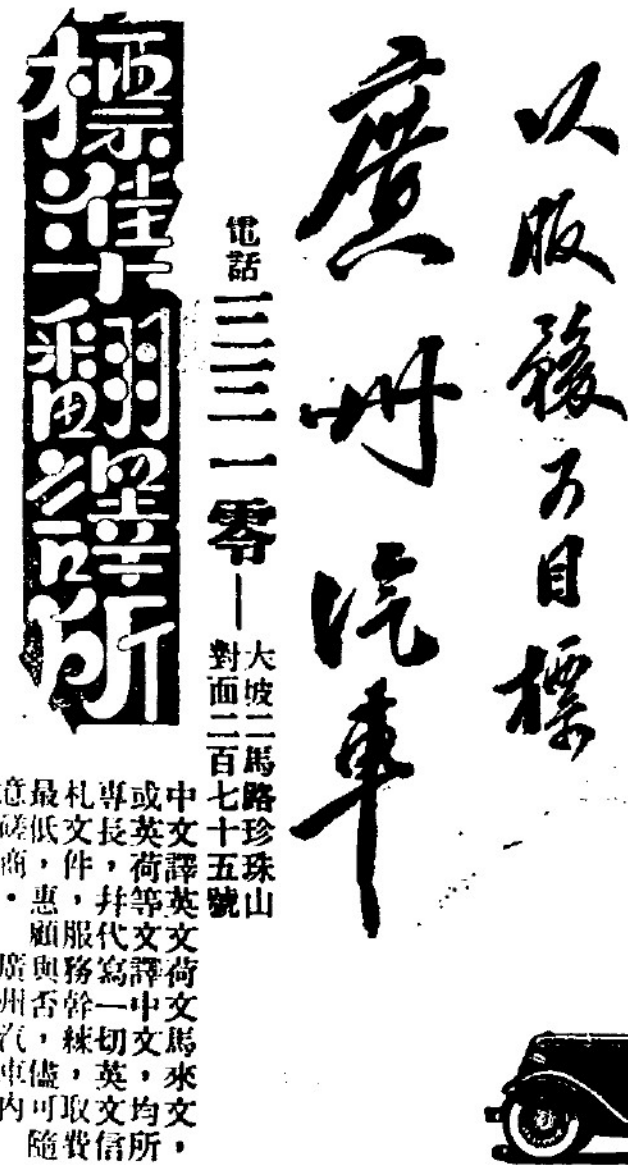 以服務为目標
廣州汽車
電話
零
大坡二馬路珍珠山
對面二百七十五號
標準翻譯所
中文譯英文荷文馬來文，
或英荷等文譯中文，均所
專長，幷代寫一切英文信
札文件，服務幹練，取費
最低，惠顧與否，儘可隨
意磋商・ 廣州汽車內